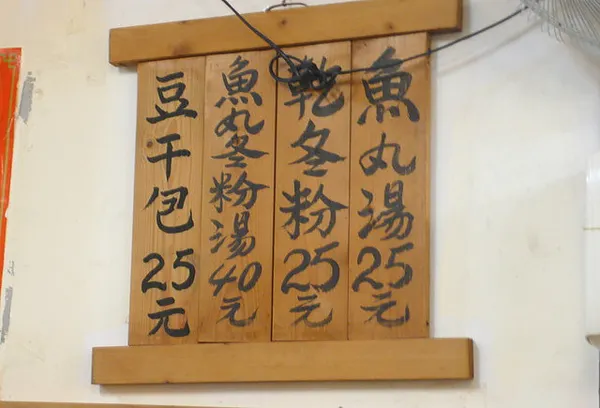 魚丸湯25元
乾冬粉25元
魚丸冬粉湯40元
豆干包25元